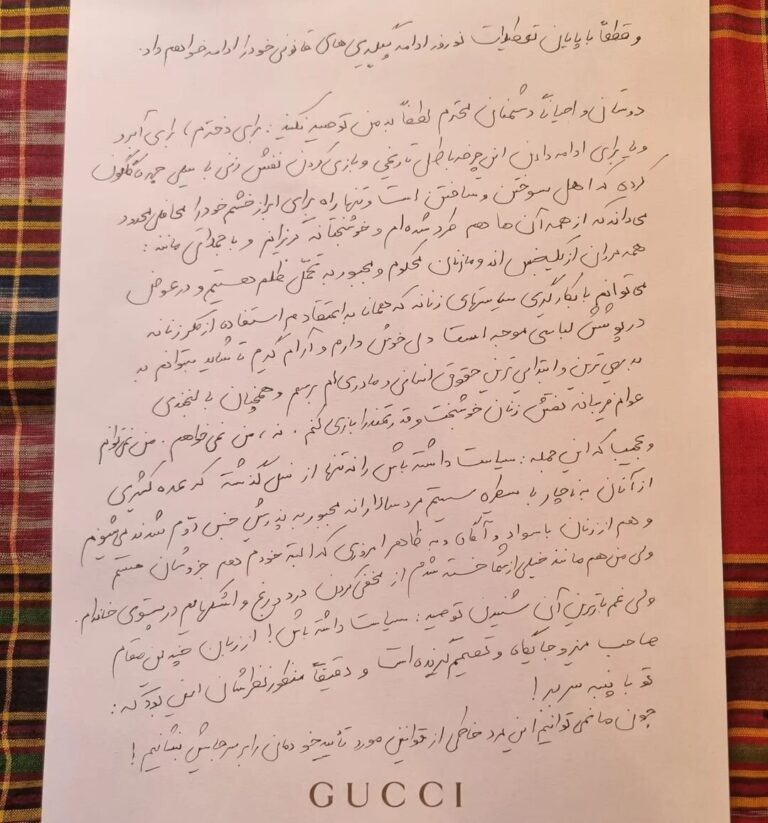 و قطعاً با پایان تعطیلات نوروز ادامه پیگیری‌های قانونی خود را ادامه خواهم داد.
دوستان و احیاناً دشمنان محترم لطفاً به من توصیه نکنید: برای دخترم، برای آبرو
و یا برای ادامه دادن این چرخه باطل تاریخی و بازی کردن نقش زنی با سیلی چهره گلگون
کرده که اهل سوختن و ساختن است و تنها راه برای ابراز خشم خود را محافلی محدود
می‌داند که از همه آن‌ها هم طرد شده‌ام و خوشبختانه گریزانم و با جملاتی مانند:
همه مردان از یک جنس‌اند و ما زنان محکوم و مجبور به تحمّل ظلم هستیم و در عوض
می‌توانم با بکارگیری سیاستهای زنانه که همان به اعتقادم استفاده از مکر زنانه
در پوشش لباسی موجه است دلی خوش دارم و آرام گیرم تا شاید بتوانم به
بدیهی‌ترین و ابتدایی‌ترین حقوق انسانی و مادری‌ام برسم و همچنان با لبخندی
عوام فریبانه نقش زنان خوشبخت و قدرتمند را بازی کنم. نه، من نمی‌خواهم. من نمی‌توانم
و عجیب که این جمله: سیاست داشته باش را نه تنها از نسل گذشته که عده کثیری
از آنان به ناچار با سیطره سیستم مردسالارانه مجبور به پذیرش جنس دوّم شدند می‌شنوم
و هم از زنان باسواد و آگاه و به ظاهر امروزی که البته خودم هم جزوشان هستم
ولی من هم مانند خیلی از شما خسته شدم از مخفی کردن درد و رنج و اشکهایم در پستوی خانه‌ام.
ولی غم‌بارترین آن شنیدن توصیه: سیاست داشته باش! از زبان چندین مقام
صاحب میز و جایگاه و تصمیم گیرنده است و دقیقاً منظور نظرشان این بود که:
تو با پنبه سر ببر!
چون ما نمی‌توانیم این مرد خاطی از قوانین مورد تأیید خودمان را بر سر جایش بنشانیم!
GUCCI